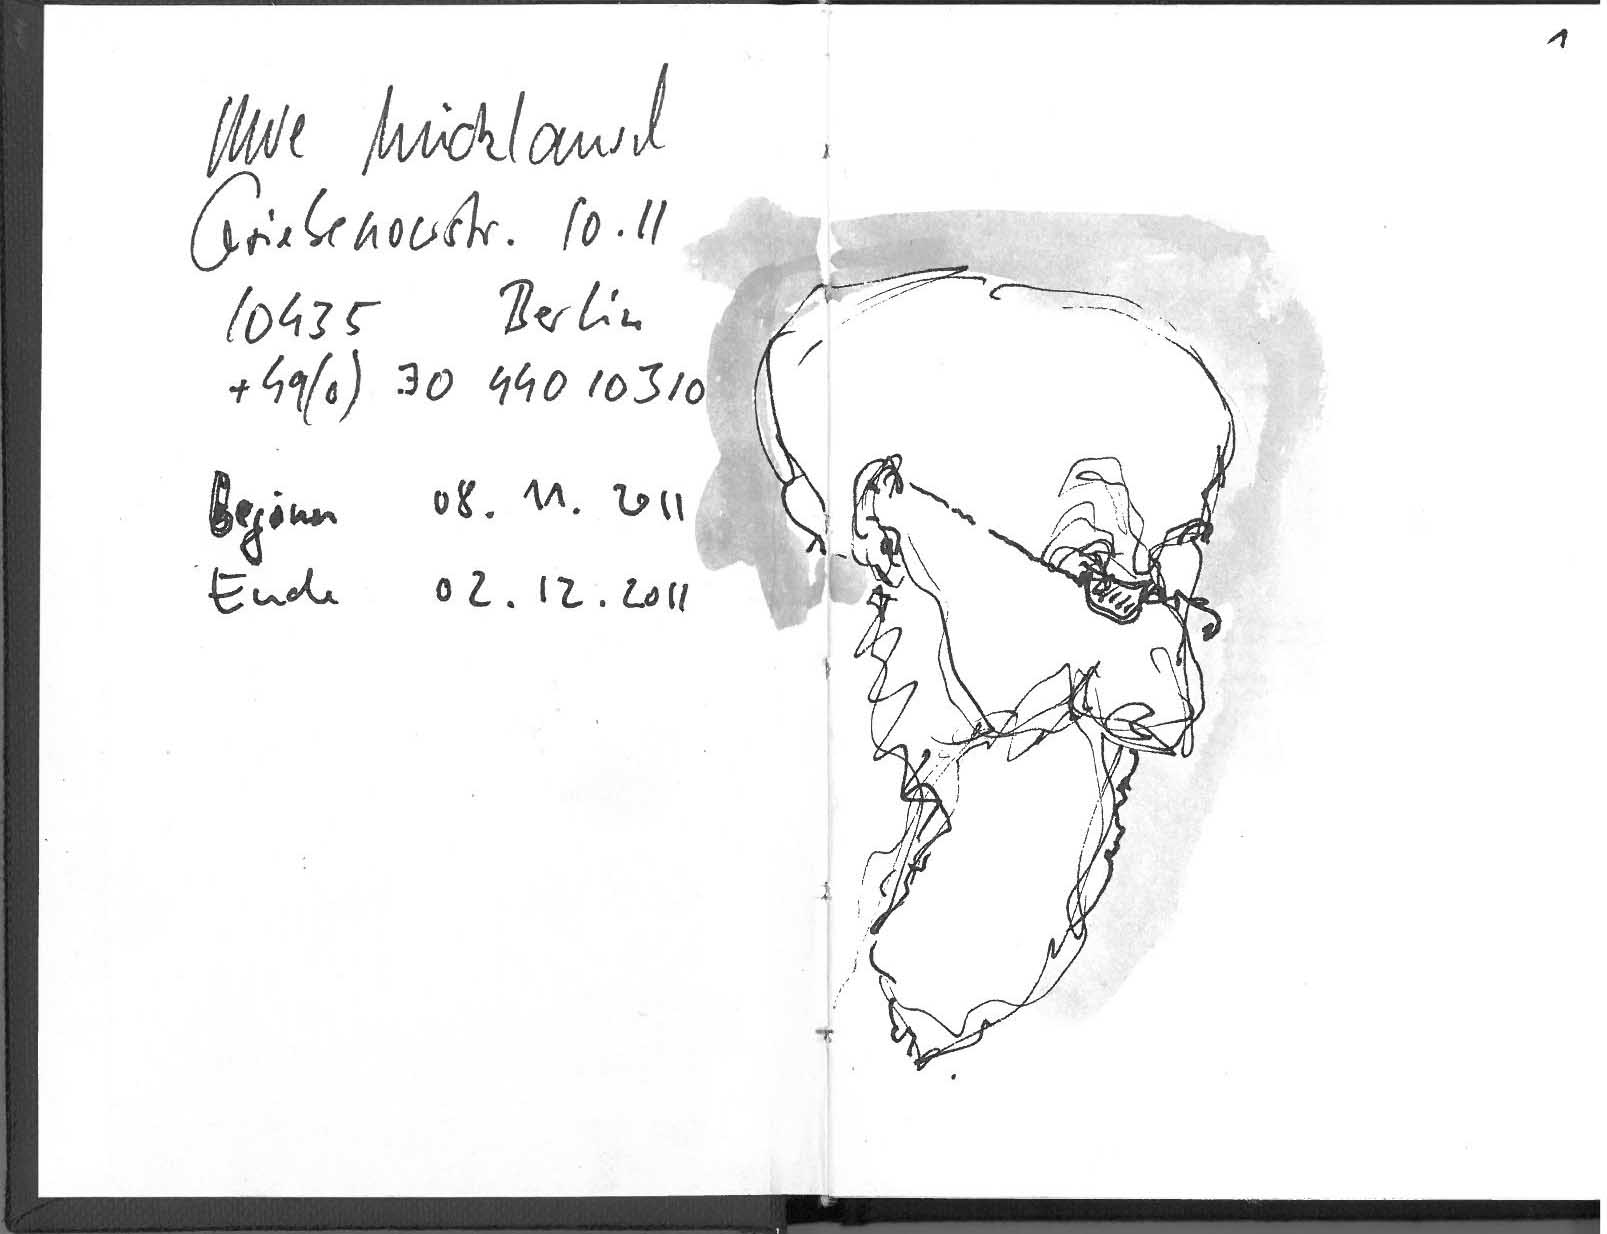 Uwe
Griebenowstr. 10.11
10435 Berlin
+49(0) 30 440 10310
Beginn 08. 11. 2011
Ende 02. 12. 2011
1